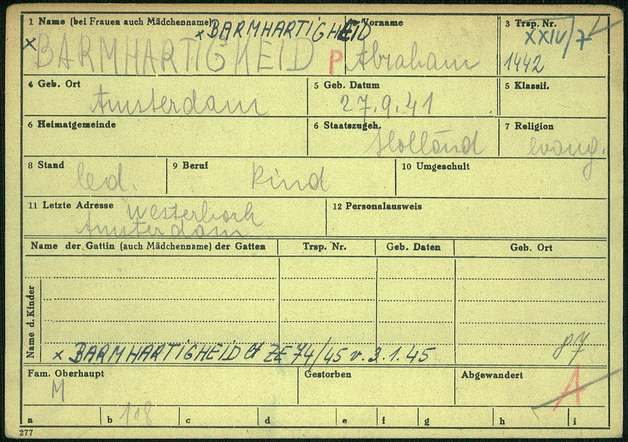 1 Name (bei Frauen auch Mädchenname) x BARMHARTIGHEID Vorname 3 Trsp. Nr.
x BARMHARTIGHEID P Abraham XXIV/7
1442
4 Geb. Ort 5 Geb. Datum 5 Klassif.
Amsterdam 27.9.41
6 Heimatgemeinde 6 Staatszugeh. 7 Religion
Holland evang.
8 Stand 9 Beruf 10 Umgeschult
led. Kind
11 Letzte Adresse 12 Personalausweis
Westerbork
Amsterdam
Name der Gattin (auch Mädchenname) der Gatten Trsp. Nr. Geb. Daten Geb. Ort
Name d. Kinder
x BARMHARTIGHEID ZE 74/45 v. 3.1.45 87
Fam. Oberhaupt Gestorben Abgewandert
M A
a b 118 c d e f g h i
277